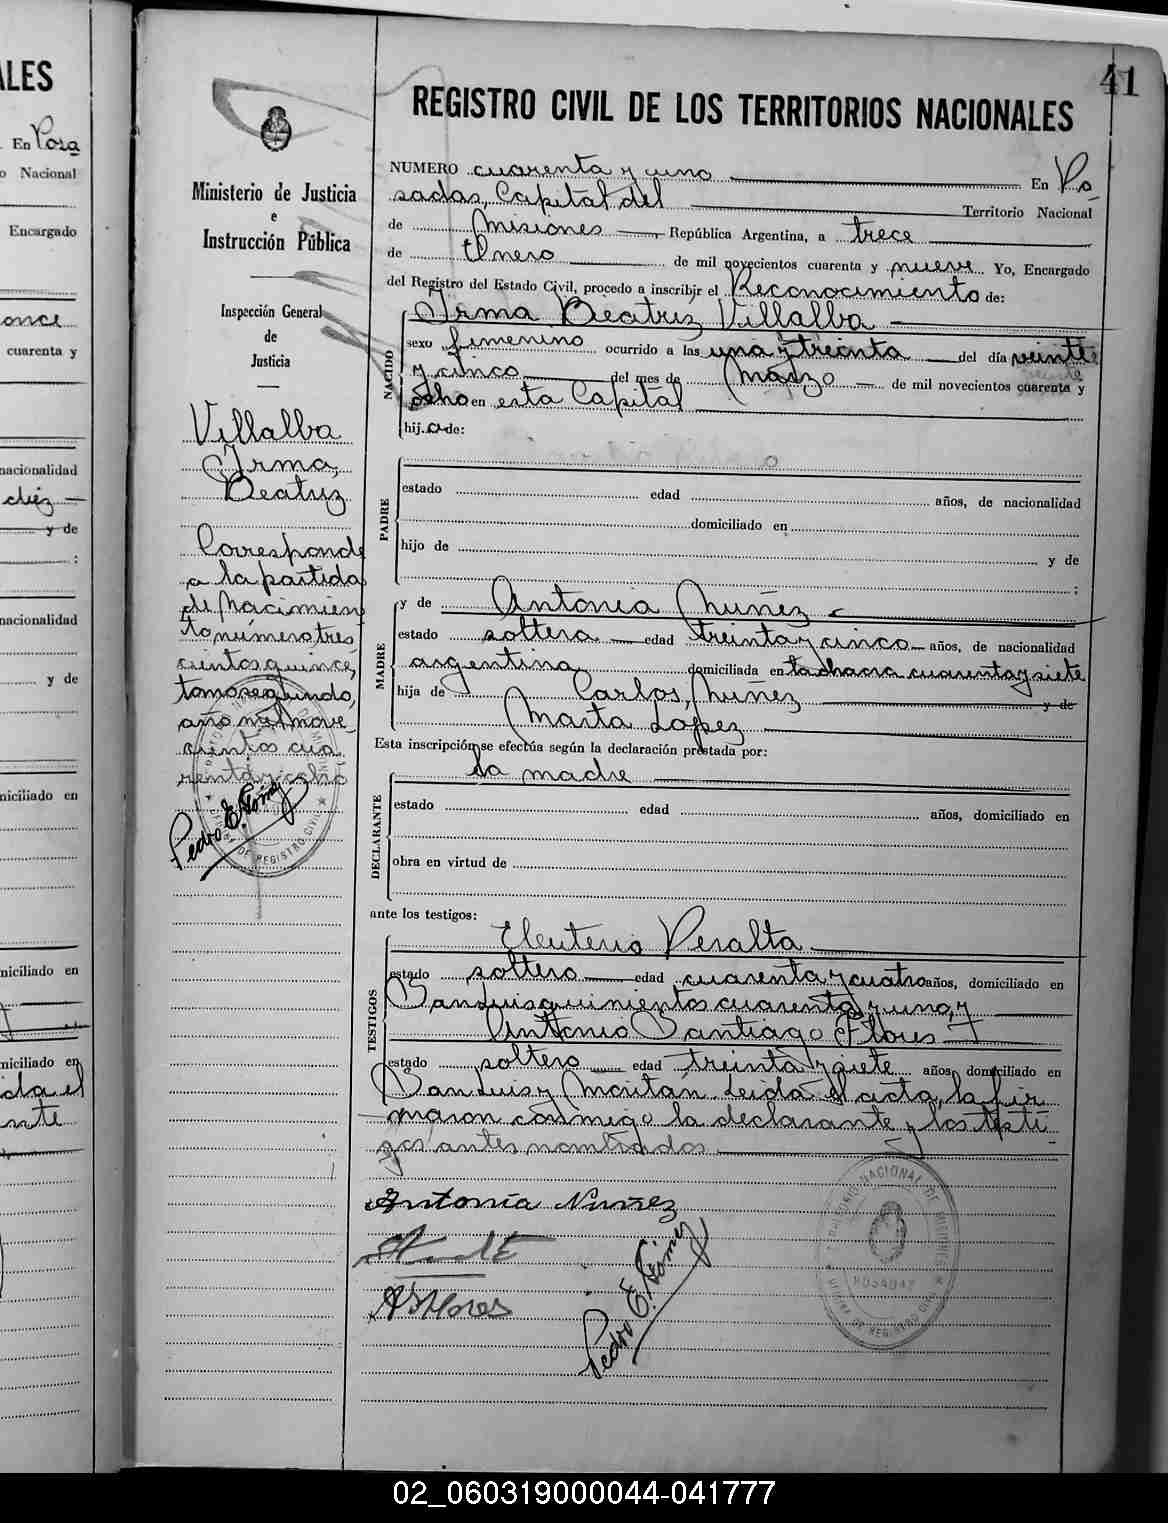 ALES
En Posa
o Nacional
Encargado
once
cuarenta y
nacionalidad
diez
y de
:
nacionalidad
y de
niciliado en
niciliado en
niciliado en
41
REGISTRO CIVIL DE LOS TERRITORIOS NACIONALES
Ministerio de Justicia
e
Instrucción Pública
Inspección General
de
Justicia
Villalba
Irma
Beatriz
Corresponde
a la partida
de Nacimien
to número tres
cientos quince,
tomo segundo,
año mil nove
cientos cua
renta y ocho
Pedro E. Gómez
NUMERO cuarenta y uno En Po
sadas, Capital del Territorio Nacional
de Misiones República Argentina, a trece
de Enero de mil novecientos cuarenta y nueve Yo, Encargado
del Registro del Estado Civil, procedo a inscribir el Reconocimiento de:
Irma Beatriz Villalba
NACIDO
sexo femenino ocurrido a las una y treinta del día veinte
y cinco del mes de Marzo de mil novecientos cuarenta y
ocho en esta Capital
hij.a de:
PADRE
estado edad años, de nacionalidad
domiciliado en
hijo de y de
:
y de Antonia Nuñez
MADRE
estado soltera edad treinta y cinco años, de nacionalidad
argentina domiciliada en la chacra cuarenta y siete
hija de Carlos Nuñez y de
Marta Lopez
Esta inscripción se efectúa según la declaración prestada por:
la madre
DECLARANTE
estado edad años, domiciliado en
obra en virtud de
ante los testigos:
Eleuterio Peralta
TESTIGOS
estado soltero edad cuarenta y cuatro años, domiciliado en
San Luis quinientos cuarenta y uno, y
Antonio Santiago Flores
estado soltero edad treinta y siete años, domiciliado en
San Luis y Maitán Leida el acta, la fir
maron conmigo la declarante y los testi
gos antes nombrados
Antonia Nuñez
ASFlores
Pedro E. Gómez
TERRITORIO NACIONAL DE MISIONES
POSADAS
OFICINA DE REGISTRO CIVIL
02_060319000044-041777